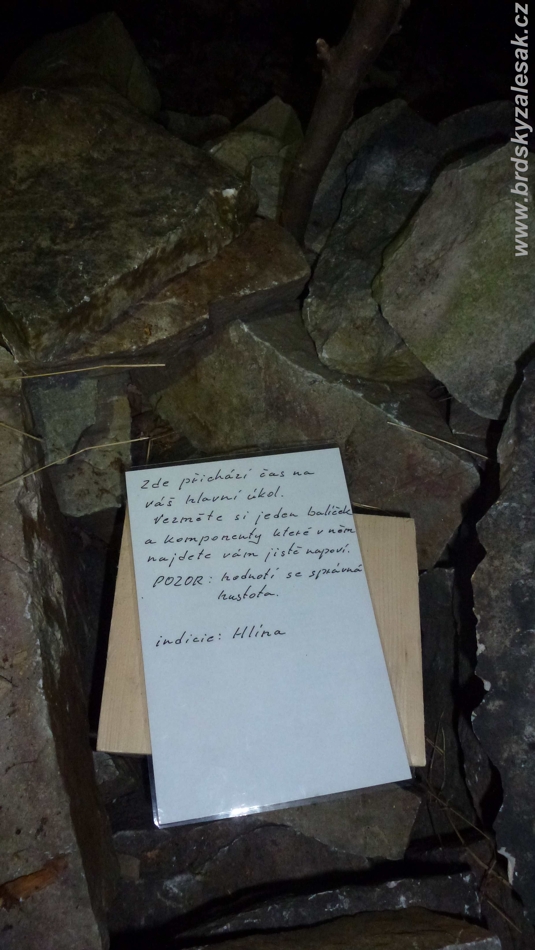 www.brdskyzalesak.cz
Zde přichází čas na
váš hlavní úkol.
Vezměte si jeden balíček
a komponenty které v něm
najdete vám jistě napoví.
POZOR: hodnotí se správná
hustota.
indicie: Hlína